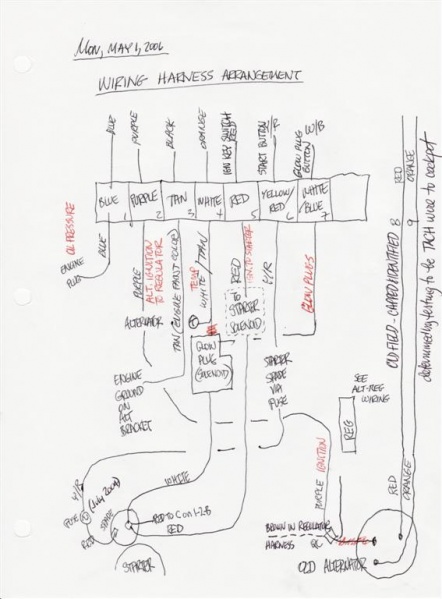 Mon, MAY 1, 2006
WIRING HARNESS ARRANGEMENT
BLUE
PURPLE
BLACK
ORANGE
IGN KEY SWITCH
RED
START BUTTON Y/R
GLOW PLUG W/B
BUTTON
BLUE 1
PURPLE 2
TAN 3
WHITE 4
RED 5
YELLOW/RED 6
WHITE/BLUE 7
OIL PRESSURE
ENGINE
PLUG
BLUE
PURPLE
ALT. IGNITION
TO REGULATOR
TAN (ENGINE PAINT COLOR)
TEMP
WHITE / TAN
RED
IGN TO STARTER
Y/R
GLOW PLUGS
TO
STARTER
SOLENOID
ALTERNATOR
GLOW
PLUG
(SOLENOID)
ENGINE
GROUND
ON
ALT
BRACKET
STARTER
SPADE
VIA
FUSE
SEE
ALT-REG
WIRING
REG
RED
ORANGE
OLD FIELD - CAPPED/IDENTIFIED 8
9
RED
ORANGE
PURPLE IGNITION
WHITE
Y/R
FUSE
(July 2004)
RED
SPADE
RED TO Con 1-2-B
RED
STARTER
BROWN IN REGULATOR
HARNESS
OLD ALTERNATOR